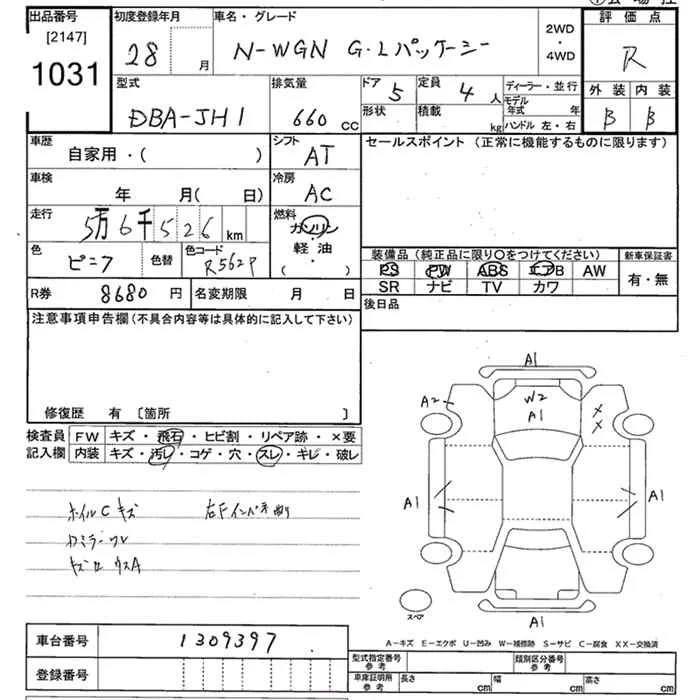 出品番号 初度登録年月 車名・グレード 評価点
[2147]
1031
28 月 N-WGN G・Lパッケージ 2WD・4WD R
型式 排気量 ドア 5 定員 4 人 ディーラー・並行 外装 内装
DBA-JH1 660 CC 形状 積載 kg モデル年式 年 ハンドル 左・右 B B
車歴 自家用・( ) シフト AT セールスポイント (正常に機能するものに限ります)
車検 年 月( 日) 冷房 AC
走行 5万6千526 km 燃料 ガソリン 軽油 ( )
色 ピンク 色替 色コード R562P
装備品 (純正品に限り○をつけてください) 新車保証書
PS PW ABS エアB AW 有・無
SR ナビ TV カワ
R券 8680 円 名変期限 月 日 後日品
注意事項申告欄 (不具合内容等は具体的に記入して下さい)
修復歴 有 〔箇所 〕
検査員記入欄 FW キズ・飛石・ヒビ割・リペア跡・×要
内装 キズ・汚レ・コゲ・穴・スレ・キレ・破レ
A1
A2 W2
A1
A1 A1
ホイルC キズ 右Fインパネ
スペア
A1
A-キズ E-エクボ U-凹み W-補修跡 S-サビ C-腐食 XX-交換済
車台番号 1309397
型式指定番号 参考 類別区分番号 参考
登録番号 車庫証明用 参考 長さ cm 幅 cm 高さ cm